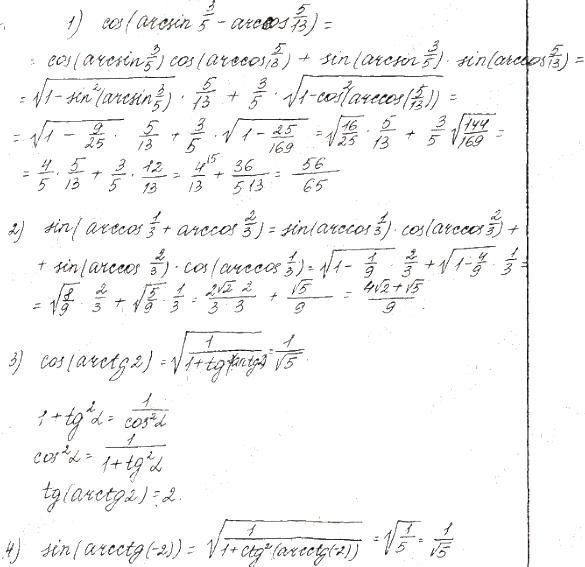 1) cos(arcsin 3/5 - arccos 5/13) =
= cos(arcsin 3/5) cos(arccos 5/13) + sin(arcsin 3/5) · sin(arccos 5/13) =
= √(1-sin²(arcsin 3/5)) · 5/13 + 3/5 · √(1-cos²(arccos(5/13))) =
= √(1 - 9/25) · 5/13 + 3/5 · √(1 - 25/169) = √(16/25) · 5/13 + 3/5 √(144/169) =
= 4/5 · 5/13 + 3/5 · 12/13 = 4/13 + 36/5·13 = 56/65
2) sin(arccos 1/3 + arccos 2/3) = sin(arccos 1/3) · cos(arccos 2/3) +
+ sin(arccos 2/3) · cos(arccos 1/3) = √(1 - 1/9) · 2/3 + √(1 - 4/9) · 1/3 =
= √(8/9) · 2/3 + √(5/9) · 1/3 = 2√2 · 2/3 · 3 + √5/9 = 4√2+√5/9
3) cos(arctg 2) = √(1/1+tg²(arctg 2)) = 1/√5
1 + tg²α = 1/cos²α
cos²α = 1/1+tg²α
tg(arctg 2) = 2.
4) sin(arcctg(-2)) = √(1/1+ctg²(arcctg(-2))) = √(1/5) = 1/√5